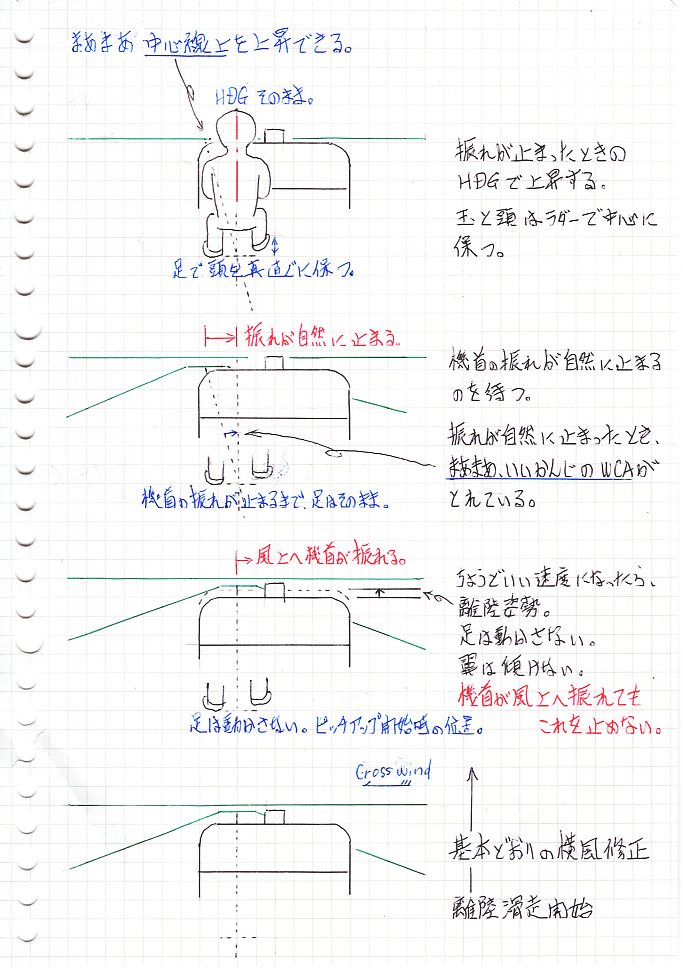 まあまあ 中心線上を上昇できる。
HDG そのまま。
振れが止まったときの
HDG で上昇する。
玉と頭はラダーで中心に
保つ。
足で頭を真直ぐに保つ。
振れが自然に止まる。
機首の振れが自然に止まる
のを待つ。
振れが自然に止まったとき、
まあまあ、いいかんじの WCAが
とれている。
機首の振れが止まるまで、足はそのまま。
風上へ機首が振れる。
ちょうどいい速度になったら、
離陸姿勢。
足は動かさない。
翼は傾けない。
機首が風上へ振れても
これを止めない。
足は動かさない。ピッチアップ開始時の位置。
Cross wind
基本どおりの横風修正
離陸滑走開始